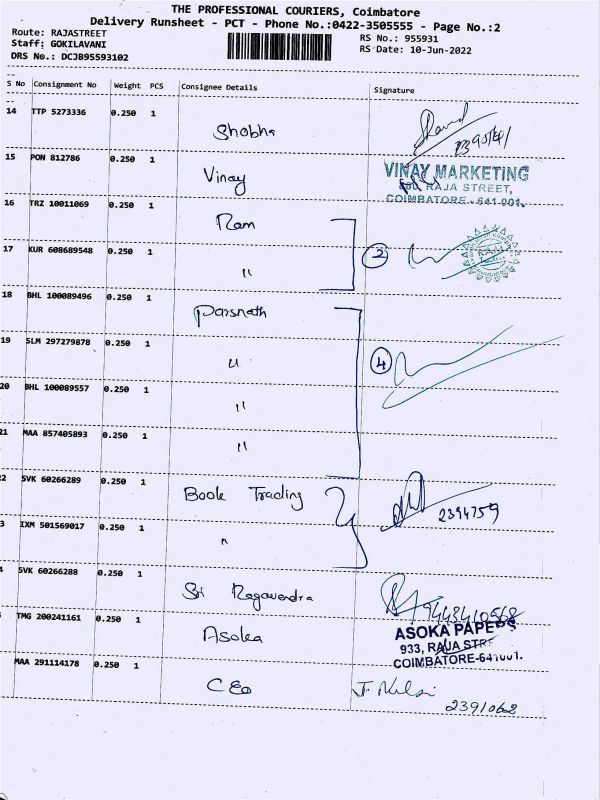 THE PROFESSIONAL COURIERS, Coimbatore
Delivery Runsheet - PCT - Phone No.:0422-3505555 - Page No.:2
Route: RAJASTREET
Staff: GOKILAVANI
DRS No.: DCJB95593102
RS No.: 955931
RS Date: 10-Jun-2022
S No Consignment No Weight PCS Consignee Details Signature
14 TTP 5273336 0.250 1
Shobha
15 PON 812786 0.250 1
Vinay
VINAY MARKETING
RAJA STREET,
COIMBATORE - 641 001.
16 TRZ 10011069 0.250 1
Ram
17 KUR 608689548 0.250 1
"
2
18 BHL 100089496 0.250 1
Parsnath
19 SLM 297279878 0.250 1
"
4
20 BHL 100089557 0.250 1
"
21 MAA 857405893 0.250 1
"
2 SVK 60266289 0.250 1
Book Trading
2394759
3 IXM 501569017 0.250 1
"
4 SVK 60266288 0.250 1
Sri Ragavendra
9443410568
TMG 200241161 0.250 1
Asoka
ASOKA PAPERS
933, RAJA STRE
COIMBATORE-641001.
MAA 291114178 0.250 1
CEO
2391062